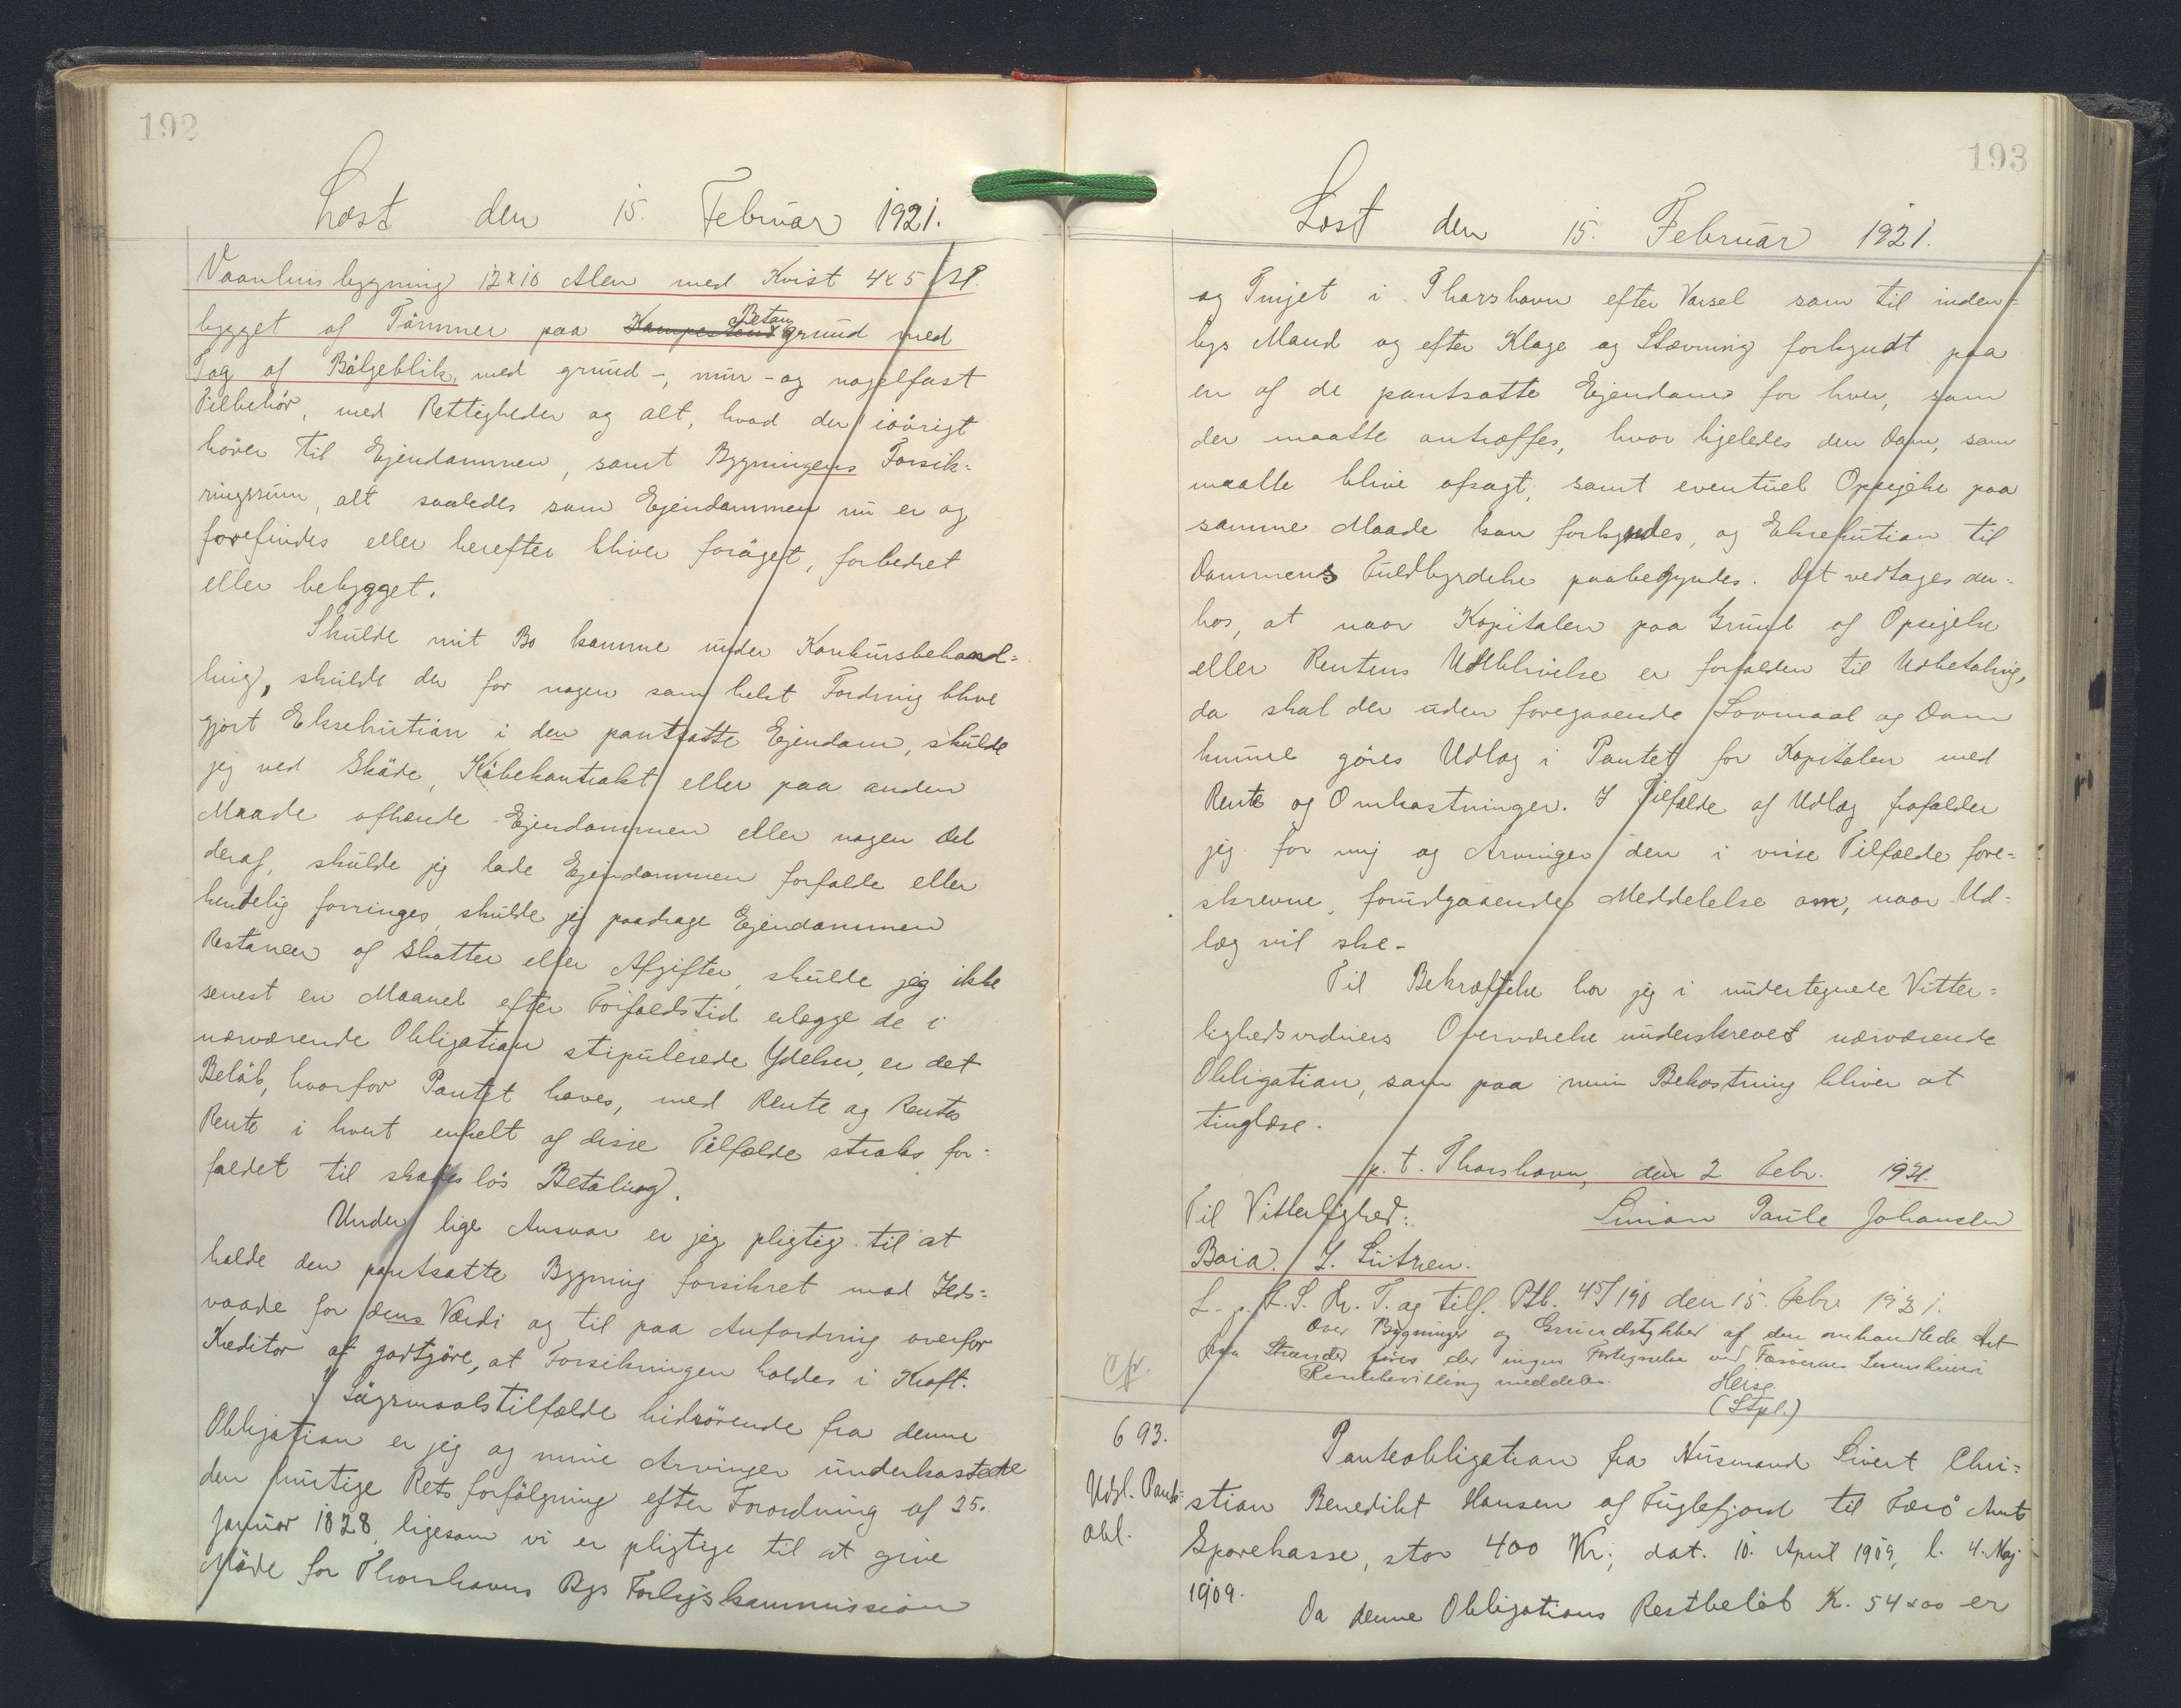 192
Læst den 15. Februar 1921.
Vaanhusbygning 12x10 Alen med Kvist 4x5 Al.
bygget af Tömmer paa Kampestens Betongrund med
Tag af Bölgeblik, med grund-, mur- og nagelfast
Tilbehör, med Rettigheder og alt, hvad der iövrigt
hörer til Ejendommen, samt Bygningens Forsik=
ringssum, alt saaledes som Ejendommen nu er og
forefindes eller herefter bliver foröget, forbedret
eller bebygget.
Skulde mit Bo komme under Konkursbehand=
ling, skulde der for nogen som helst Fordring blive
gjort Eksekution i den pantsatte Ejendom, skulde
jeg ved Sköde, Köbekontrakt eller paa anden
Maade afhænde Ejendommen eller nogen Del
deraf, skulde jeg lade Ejendommen forfalde eller
kendelig forringes, skulde jeg paadrage Ejendommen
Restancer af Skatter eller Afgifter, skulde jeg ikke
senest en Maaned efter Forfaldstid erlægge de i
nærværende Obligation stipulerede Ydelser, er det
Belöb, hvorfor Pantet haves, med Rente og Rentes
Rente i hvert enkelt af disse Tilfælde straks for=
faldet til skadeslös Betaling.
Under lige Ansvar er jeg pligtig til at
holde den pantsatte Bygning forsikret mod Ilds=
vaade for dens Værdi og til paa Anfordring overfor
Kreditor at godtgöre, at Forsikringen holdes i Kraft.
I Sögsmaalstilfælde hidrörende fra denne
Obligation er jeg og mine Arvinger underkastede
den hurtige Retsforfölgning efter Forordning af 25.
Januar 1828, ligesom vi er pligtige til at give
Möde for Thorshavns Bys Forligskommission
193
Læst den 15. Februar 1921.
og Tinget i Thorshavn efter Varsel som til inden=
bys Mand og efter Klage og Stævning forkyndt paa
en af de pantsatte Ejendomme for hver, som
der maatte antræffes, hvor ligeledes den Dom, som
maatte blive afsagt, samt eventuel Opsigelse paa
samme Maade kan forkyndes, og Eksekution til
Dommens Fuldbyrdelse paabegyndes. Det vedtages der=
hos, at naar Kapitalen paa Grund af Opsigelse
eller Rentens Udeblivelse er forfalden til Udbetaling,
da skal der uden foregaaende Lovmaal og Dom
kunne göres Udlæg i Pantet for Kapitalen med
Rente og Omkostninger. I Tilfælde af Udlæg frafalder
jeg for mig og Arvinger den i visse Tilfælde fore=
skrevne, forudgaaende Meddelelse om, naar Ud=
læg vil ske.
Til Bekræftelse har jeg i undertegnede Vitter=
lighedsvidners Overværelse underskrevet nærværende
Obligation, som paa min Bekostning bliver at
tinglæse.
p. t. Thorshavn, den 2 Febr. 1921.
Til Vitterlighed: Simon Paule Johansen
Baia. J. Lützen.
L. p. F. S. Kr. T. og tilf. Ptb. 45/190 den 15. Febr. 1921.
Over Bygninger og Grundstykker af den omhandlede Art
paa Strender föres der ingen Fortegnelse ved Færöernes Sorenskriveri
cfr.
meddeles.
(Stpl.)
693. Panteobligation fra Husmand Sivert Chri=
Udsl. Pante= stian Benedikt Hansen af Fuglefjord til Færö Amts
obl. Sparekasse, stor 400 Kr.; dat. 10. April 1909, l. 4. Maj
1909. Da denne Obligations Restbelöb Kr. 54x00 er